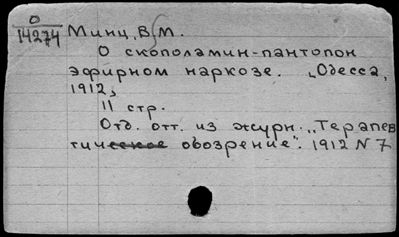 О
14274
Минц, В.М.
О скополамин-пантопон
эфирном наркозе. „Одесса,
1912,
11 стр.
Отд. отт. из журн. „Терапев
тическое обозрение". 1912 N 7